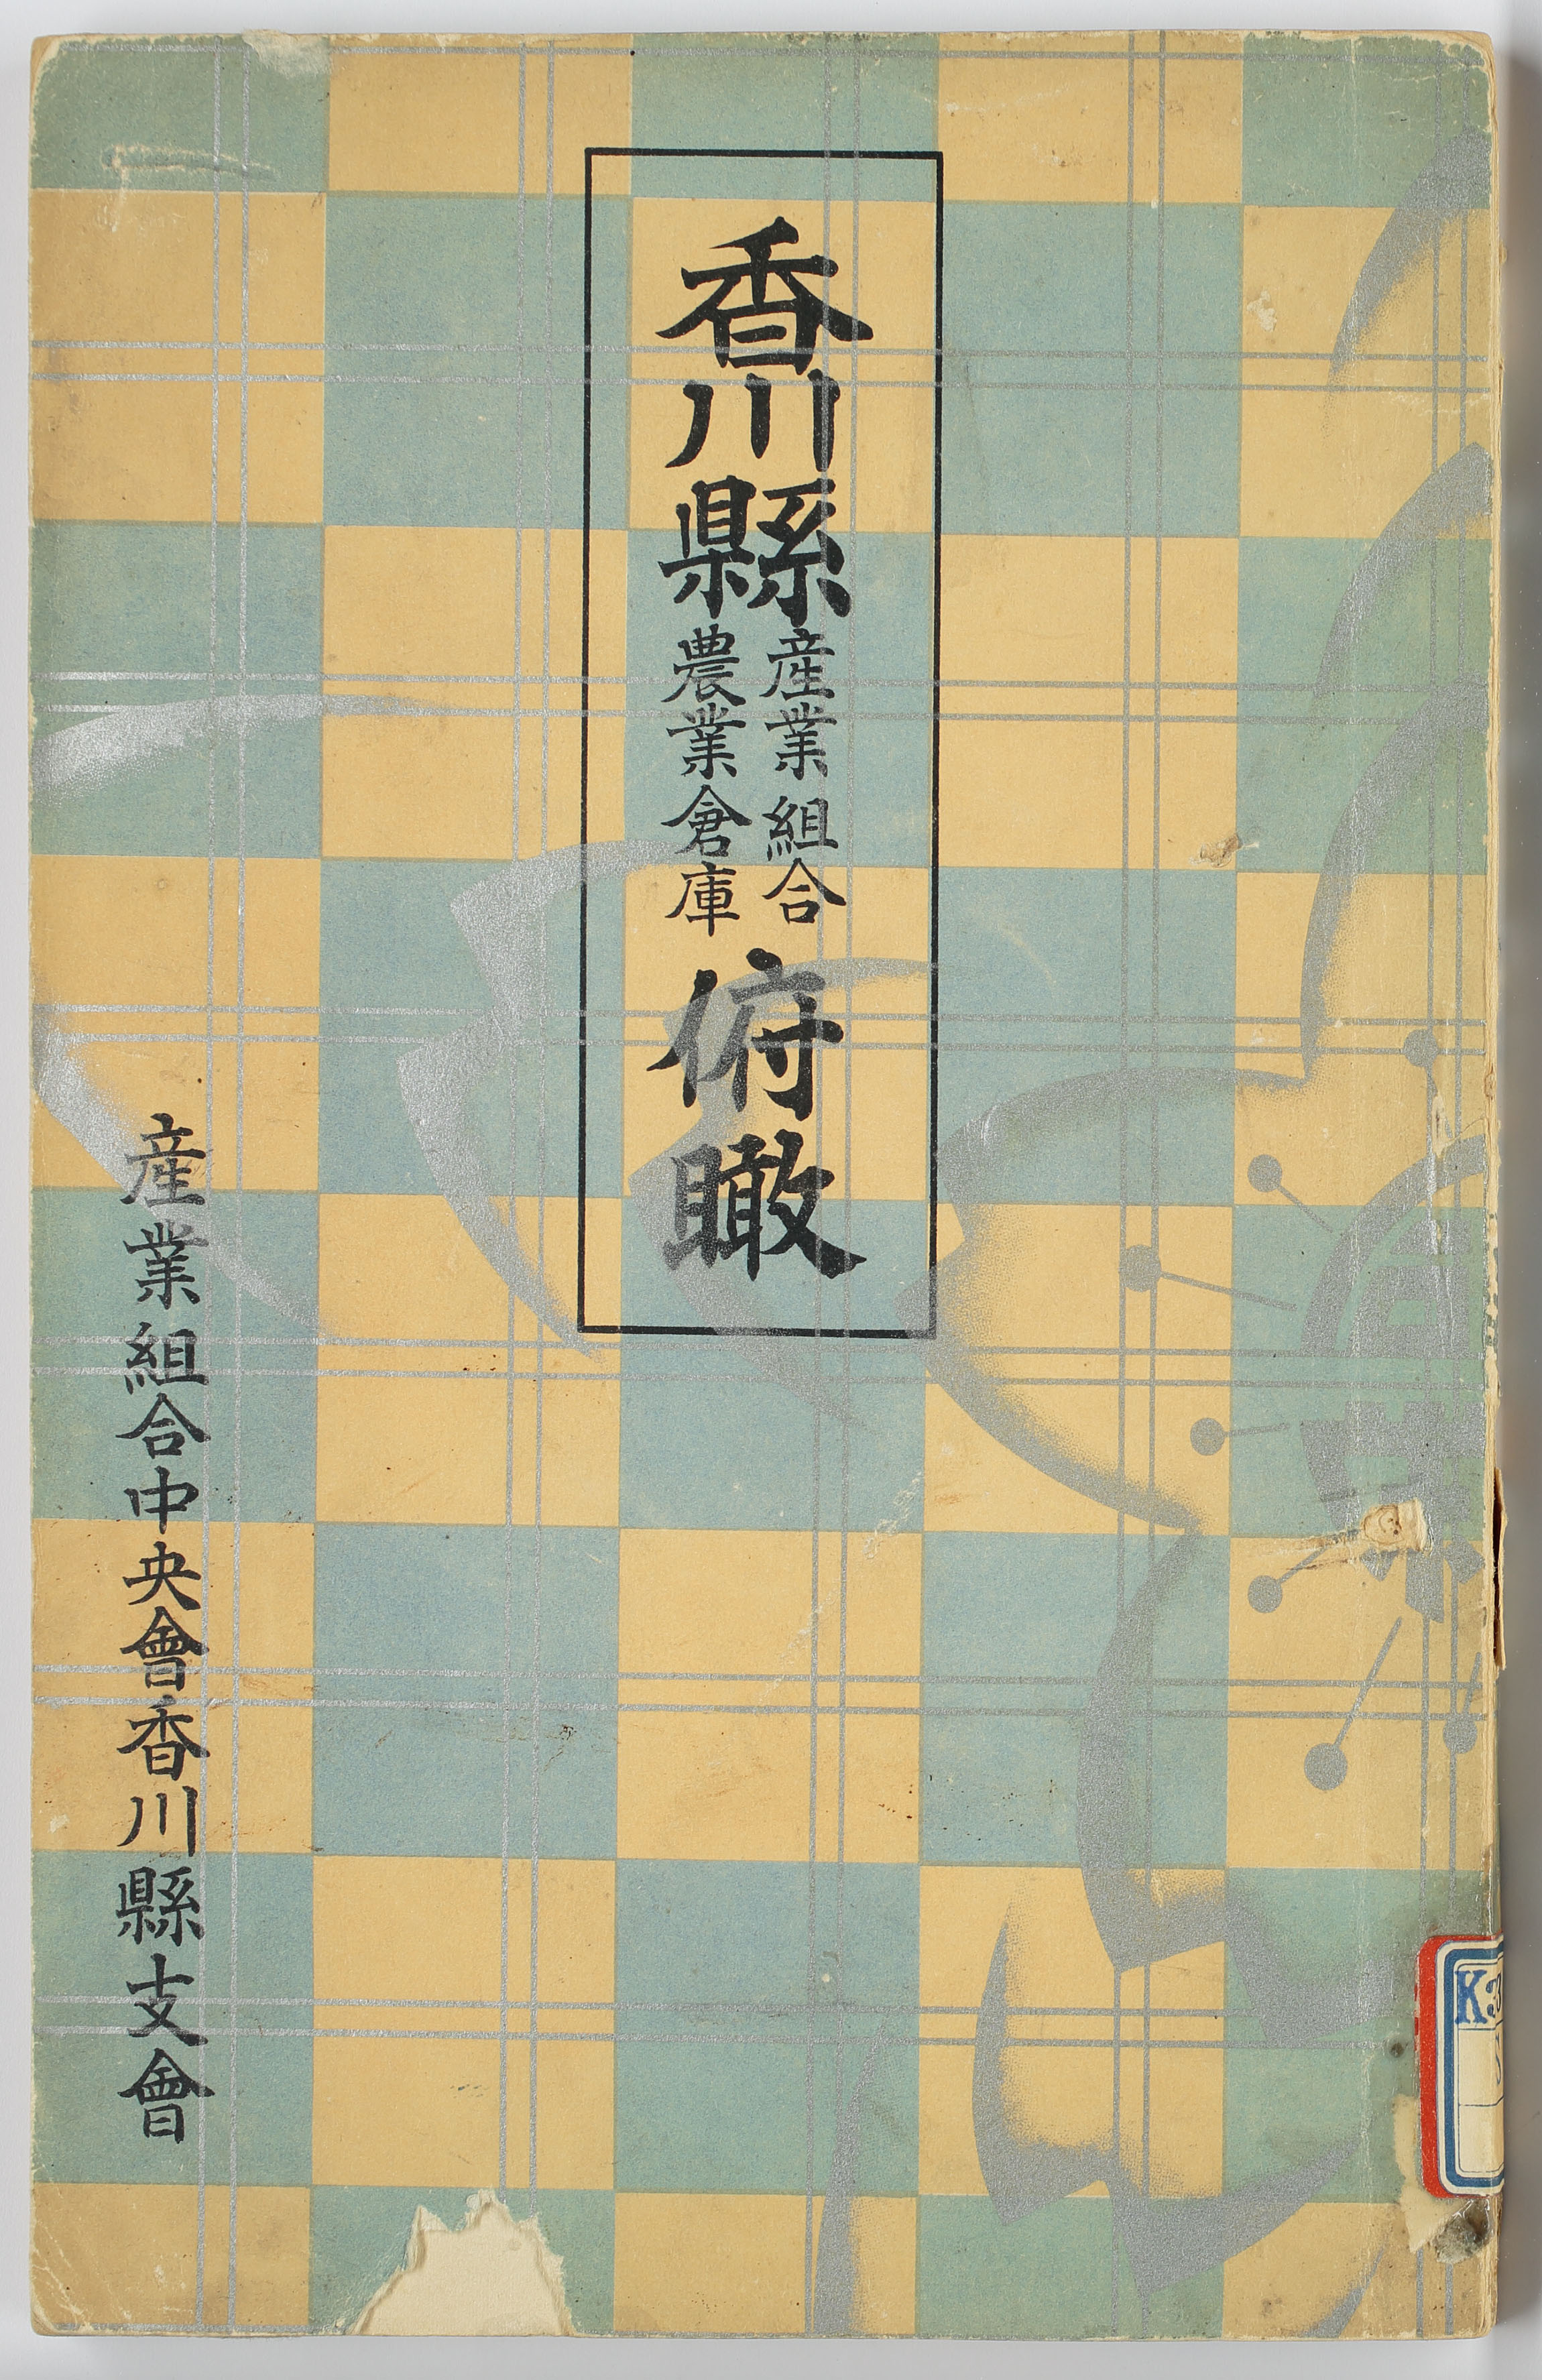 香川縣
産業組合
農業倉庫
俯瞰
産業組合中央會香川縣支會
K3